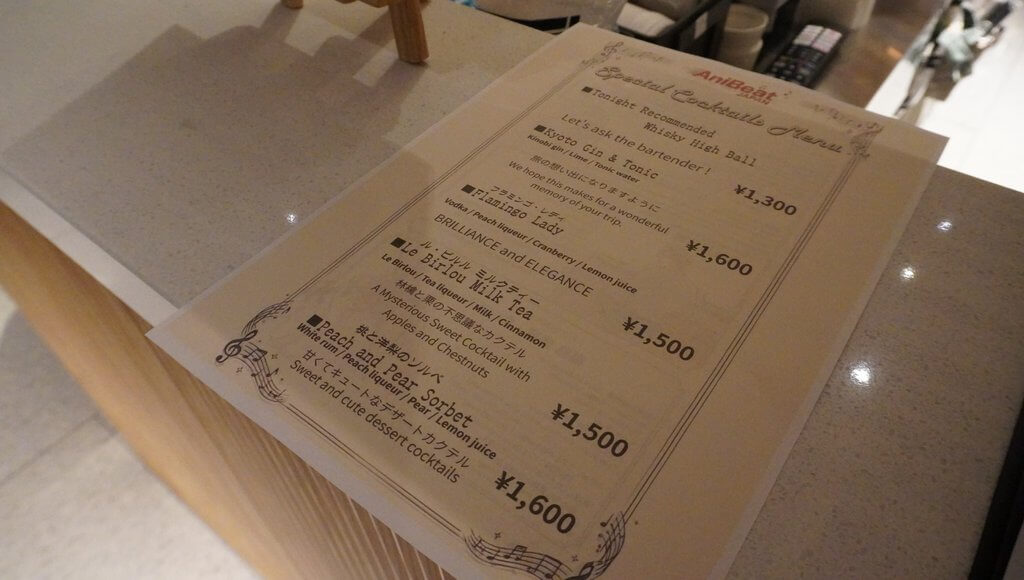 AniBeat
Special Cocktails Menu
■Tonight Recommended
Whisky High Ball
Let's ask the bartender!
¥1,300
■Kyoto Gin & Tonic
Kinobi gin / Lime / Tonic water
旅の想い出になりますように
We hope this makes for a wonderful
memory of your trip.
¥1,600
フラミンゴ・レディ
■Flamingo Lady
Vodka / Peach liqueur / Cranberry / Lemon juice
BRILLIANCE and ELEGANCE
¥1,500
ル・ビルル ミルクティー
■Le Birlou Milk Tea
Le Birlou / Tea liqueur / Milk / Cinnamon
林檎と栗の不思議なカクテル
A Mysterious Sweet Cocktail with
Apples and Chestnuts
¥1,500
桃と洋梨のソルベ
■Peach and Pear Sorbet
White rum / Peach liqueur / Pear / Lemon juice
甘くてキュートなデザートカクテル
Sweet and cute dessert cocktails
¥1,600